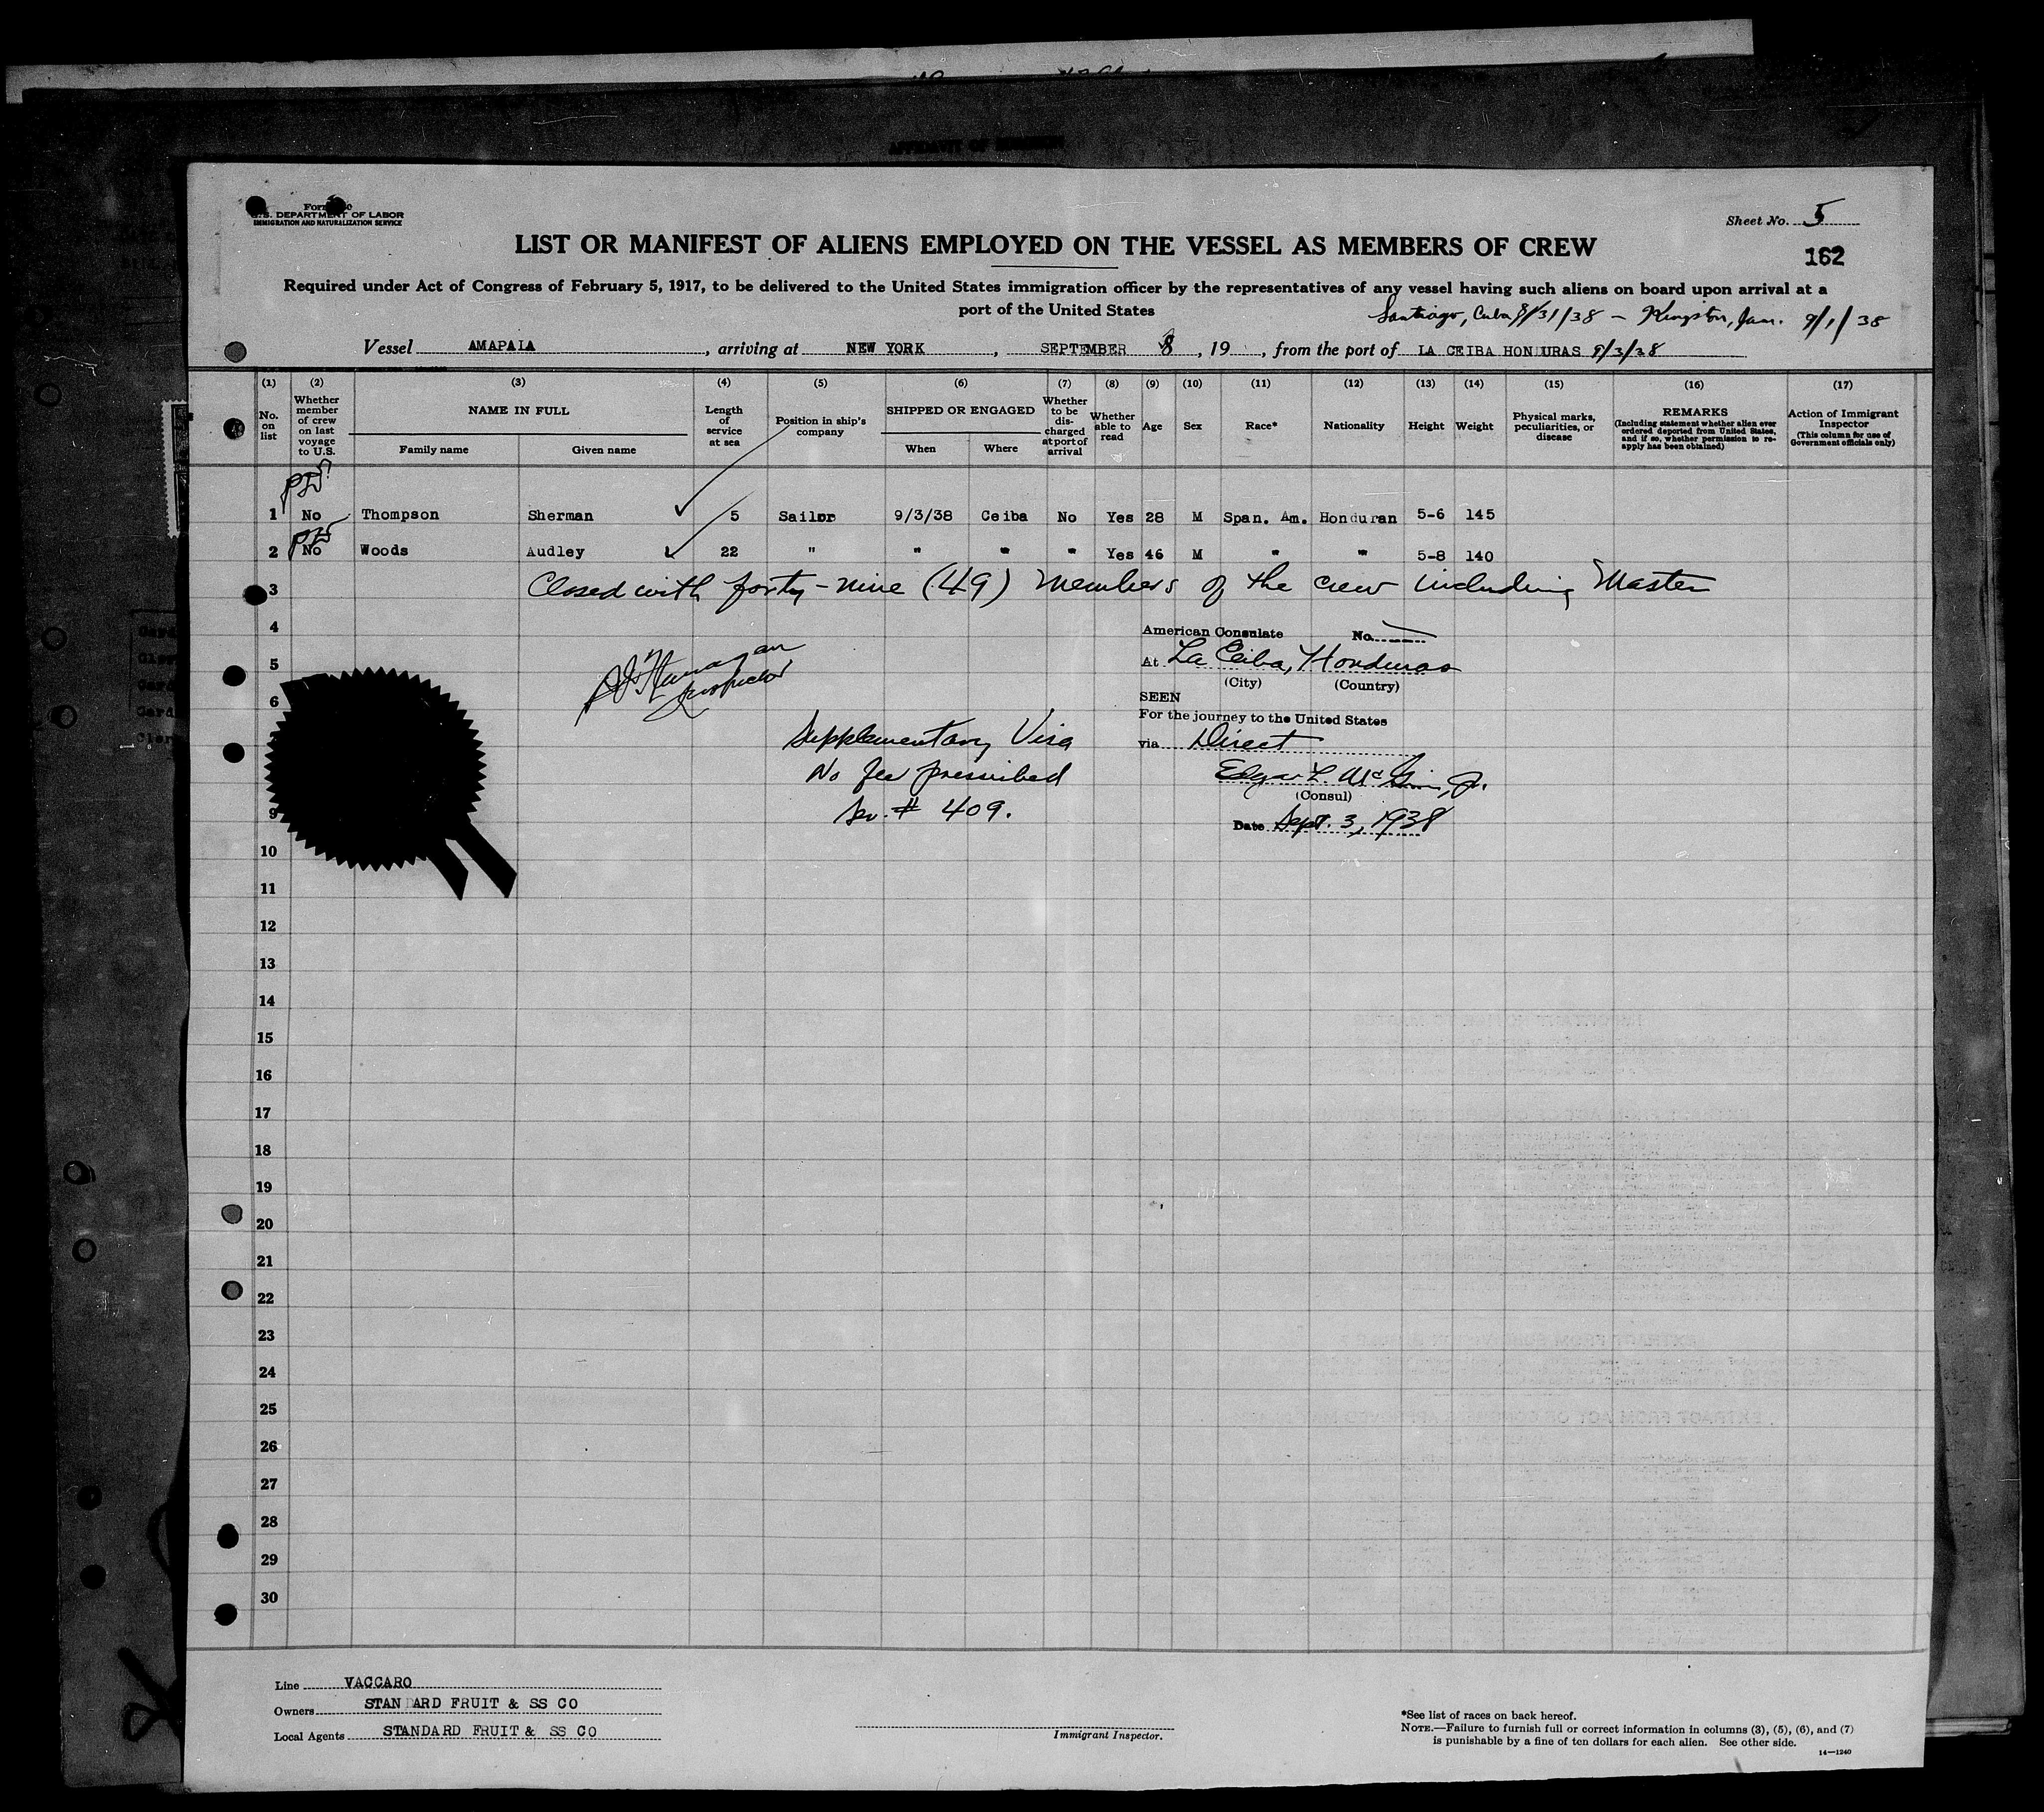 U.S. DEPARTMENT OF LABOR
IMMIGRATION AND NATURALIZATION SERVICE
Sheet No. 5
LIST OR MANIFEST OF ALIENS EMPLOYED ON THE VESSEL AS MEMBERS OF CREW
162
Required under Act of Congress of February 5, 1917, to be delivered to the United States immigration officer by the representatives of any vessel having such aliens on board upon arrival at a
port of the United States
Santiago, Cuba 8/31/38 – Kingston, Jam. 9/1/38
Vessel AMAPALA, arriving at NEW YORK, SEPTEMBER 8, 19 , from the port of LA CEIBA HONDURAS 9/3/38
(1) (2) (3) (4) (5) (6) (7) (8) (9) (10) (11) (12) (13) (14) (15) (16) (17)
No. on list
Whether member of crew on last voyage to U.S.
NAME IN FULL
Family name
Given name
Length of service at sea
Position in ship's company
SHIPPED OR ENGAGED
When
Where
Whether to be discharged at port of arrival
Whether able to read
Age
Sex
Race*
Nationality
Height
Weight
Physical marks, peculiarities, or disease
REMARKS
(Including statement whether alien ever ordered deported from United States, and if so, whether permission to reapply has been obtained)
Action of Immigrant Inspector
(This column for use of Government officials only)
1 No Thompson Sherman 5 Sailor 9/3/38 Ceiba No Yes 28 M Span. Am. Honduran 5-6 145
2 No Woods Audley 22 " " " " Yes 46 M " " 5-8 140
3 Closed with forty-nine (49) members of the crew including Master
4
American Consulate No.
5
At La Ceiba, Honduras
(City) (Country)
Inspector
6
SEEN
For the journey to the United States
Supplementary Visa
via Direct
No fee prescribed
Edgar L. McGinnis, Jr.
(Consul)
9
Ser. # 409.
Date Sept. 3, 1938
10
11
12
13
14
15
16
17
18
19
20
21
22
23
24
25
26
27
28
29
30
Line VACCARO
Owners STANDARD FRUIT & SS CO
Local Agents STANDARD FRUIT & SS CO
Immigrant Inspector.
*See list of races on back hereof.
NOTE.—Failure to furnish full or correct information in columns (3), (5), (6), and (7)
is punishable by a fine of ten dollars for each alien. See other side.
14—1240